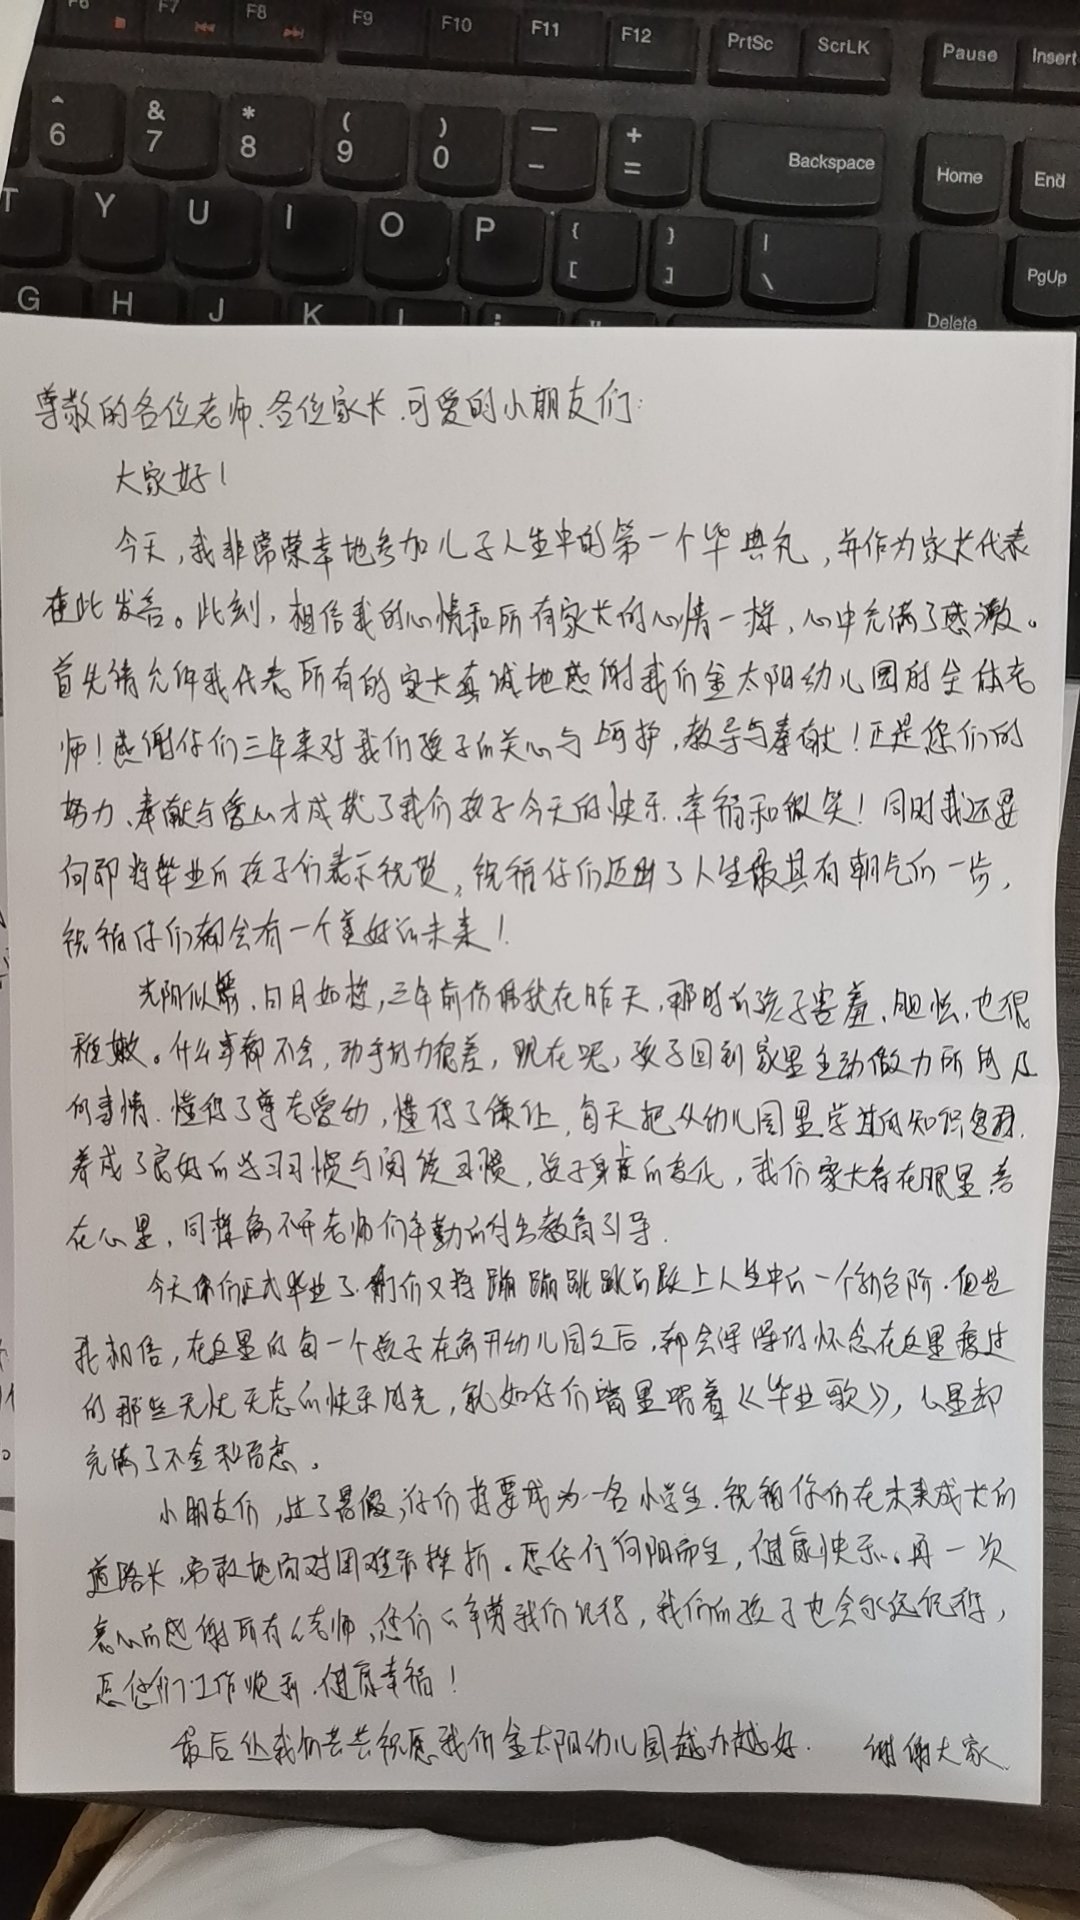 F6 F7 F8 F9 F10 F11 F12 PrtSc ScrLK Pause Insert
^ & * ( ) — +
6 7 8 9 0 - = Backspace Home End
T Y U I O P { [ } ] | \ PgUp
G H J K L Delete
尊敬的各位老师、各位家长、可爱的小朋友们:
大家好!
今天,我非常荣幸地参加儿子人生中的第一个毕典礼,并作为家长代表
在此发言。此刻,相信我的心情和所有家长的心情一样,心中充满了感激。
首先请允许我代表所有的家长真诚地感谢我们金太阳幼儿园的全体老
师!感谢你们三年来对我们孩子的关心与呵护,教导与奉献!正是您们的
努力、奉献与爱心才成就了我们孩子今天的快乐、幸福和微笑!同时我还要
向即将毕业的孩子们表示祝贺,祝福你们迈出了人生最具有朝气的一步,
祝福你们都会有一个美好的未来!
光阴似箭、日月如梭,三年前仿佛就在昨天,那时的孩子害羞、胆怯,也很
稚嫩。什么事都不会,动手能力很差,现在呢,孩子回到家里主动做力所能及
的事情.懂得了尊老爱幼,懂得了谦让,每天把从幼儿园里学过的知识
养成了良好的学习习惯与阅读习惯,孩子身上的变化,我们家长看在眼里喜
在心里,同样离不开老师们辛勤的付出教育引导.
今天你们正式毕业了.你们又将蹦蹦跳跳的跃上人生中的一个新台阶.但是
我相信,在这里的每一个孩子在离开幼儿园之后,都会深深的怀念在这里度过
的那些无忧无虑的快乐时光,就如你们嘴里唱着《毕业歌》,心里却
充满了不舍和留恋。
小朋友们,过了暑假,你们将要成为一名小学生.祝福你们在未来成长的
道路长,勇敢地面对困难和挫折。愿你们向阳而生,健康快乐。再一次
衷心的感谢所有的老师,您们的辛劳我们记得,我们的孩子也会永远记得,
愿您们工作顺利.健康幸福!
最后让我们共共祝愿我们金太阳幼儿园越办越好.  谢谢大家